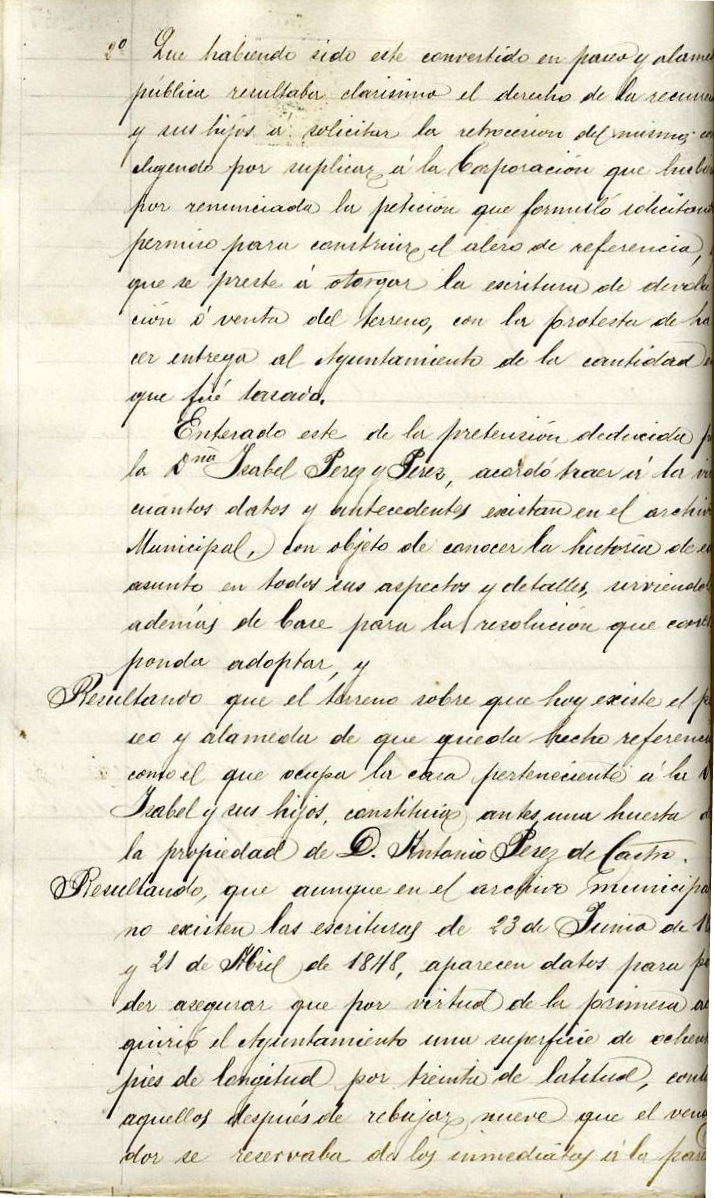 2º Que habiendo sido este convertido en paseo y alame
pública resultaba clarisimo el derecho de la recurre
y sus hijos á solicitar la retrocesion del mismo; con
cluyendo por suplicar á la Corporación que hubie
por renunciada la petición que formuló solicitan
permiso para construir el alero de referencia,
que se preste á otorgar la escritura de devolu
ción ó venta del terreno, con la protesta de ha
cer entrega al Ayuntamiento de la cantidad en
que fué tasado.
Enterado este de la pretensión deducida p
la Dña Isabel Perez y Perez, acordó traer á la vis
cuantos datos y antecedentes existan en el archiv
Municipal, con objeto de conocer la historia de es
asunto en todos sus aspectos y detalles, sirviendo
además de base para la resolución que corres
ponda adoptar, y
Resultando que el terreno sobre que hoy existe el pa
seo y alameda de que queda hecho referenci
como el que ocupa la casa perteneciente á la D
Isabel y sus hijos, constituía antes una huerta d
la propiedad de D. Antonio Perez de Castro.
Resultando, que aunque en el archivo municipa
no existen las escrituras de 23 de Junio de 18
y 21 de Abril de 1848, aparecen datos para po
der asegurar que por virtud de la primera ad
quirió el Ayuntamiento una superficie de ochen
pies de longitud por treinta de latitud, conta
aquellos después de rebajar nueve que el vend
dor se reservaba de los inmediatos á la pare